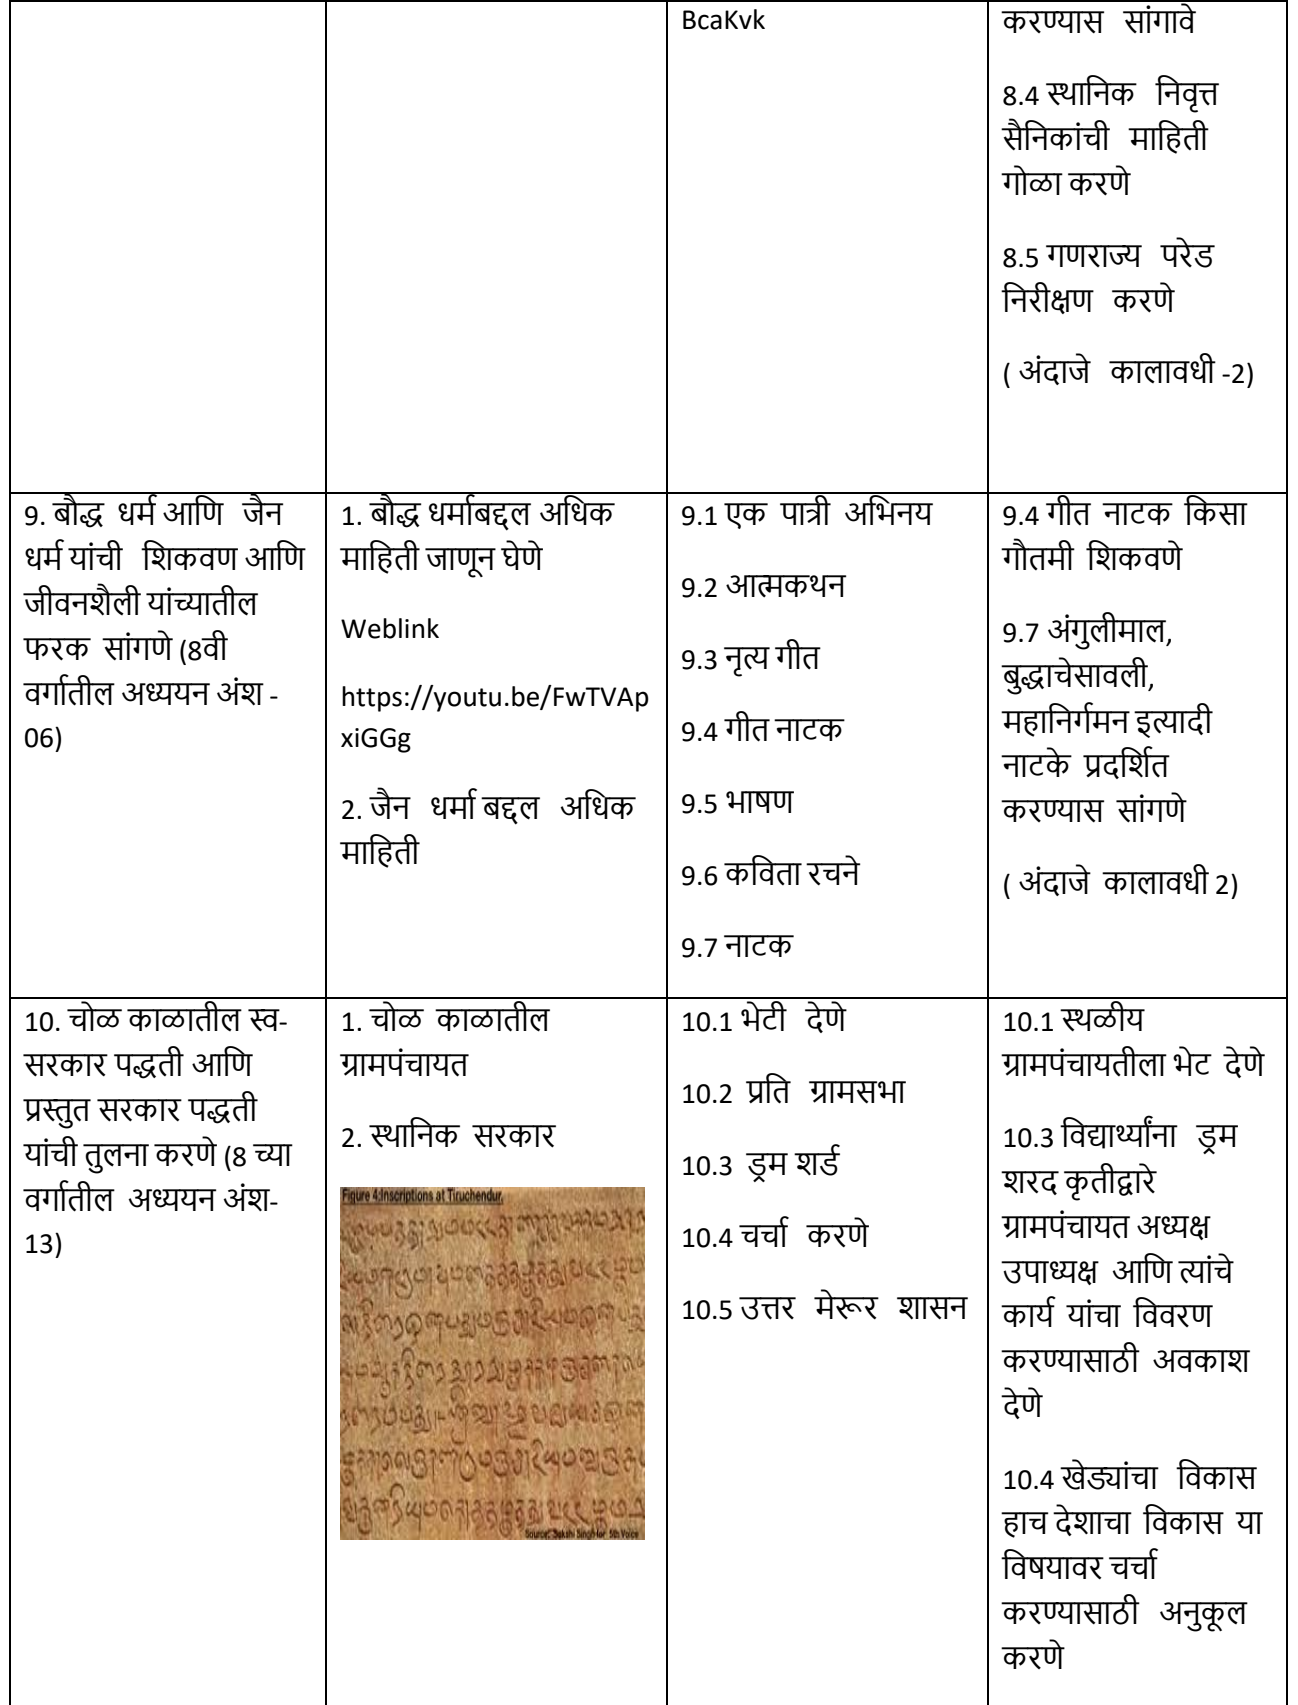 BcaKvk
करण्यास सांगावे
8.4 स्थानिक निवृत्त
सैनिकांची माहिती
गोळा करणे
8.5 गणराज्य परेड
निरीक्षण करणे
( अंदाजे कालावधी -2)
9. बौद्ध धर्म आणि जैन
धर्म यांची शिकवण आणि
जीवनशैली यांच्यातील
फरक सांगणे (8वी
वर्गातील अध्ययन अंश -
06)
1. बौद्ध धर्माबद्दल अधिक
माहिती जाणून घेणे
Weblink
https://youtu.be/FwTVAp
xiGGg
2. जैन धर्मा बद्दल अधिक
माहिती
9.1 एक पात्री अभिनय
9.2 आत्मकथन
9.3 नृत्य गीत
9.4 गीत नाटक
9.5 भाषण
9.6 कविता रचने
9.7 नाटक
9.4 गीत नाटक किसा
गौतमी शिकवणे
9.7 अंगुलीमाल,
बुद्धाचेसावली,
महानिर्गमन इत्यादी
नाटके प्रदर्शित
करण्यास सांगणे
( अंदाजे कालावधी 2)
10. चोळ काळातील स्व-
सरकार पद्धती आणि
प्रस्तुत सरकार पद्धती
यांची तुलना करणे (8 च्या
वर्गातील अध्ययन अंश-
13)
1. चोळ काळातील
ग्रामपंचायत
2. स्थानिक सरकार
Figure 4:Inscriptions at Tiruchendur.
Source: Sakshi Singh for 5th Voice
10.1 भेटी देणे
10.2 प्रति ग्रामसभा
10.3 ड्रम शर्ड
10.4 चर्चा करणे
10.5 उत्तर मेरूर शासन
10.1 स्थळीय
ग्रामपंचायतीला भेट देणे
10.3 विद्यार्थ्यांना ड्रम
शरद कृतीद्वारे
ग्रामपंचायत अध्यक्ष
उपाध्यक्ष आणि त्यांचे
कार्य यांचा विवरण
करण्यासाठी अवकाश
देणे
10.4 खेड्यांचा विकास
हाच देशाचा विकास या
विषयावर चर्चा
करण्यासाठी अनुकूल
करणे